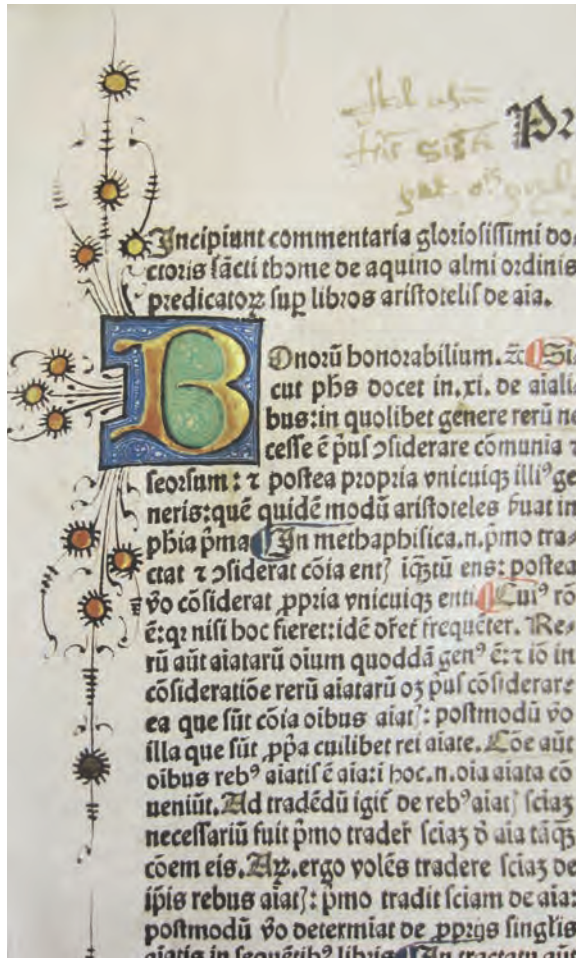 Pr
Incipiunt commentaria gloriosissimi do⸗
ctoris sācti thome de aquino almi ordinis
predicatoꝝ sup̱ libros aristotelis de aīa.
Bonorū honorabilium. ⁊c̄ Si⸗
cut ph̄s docet in .xi. de aīali⸗
bus: in quolibet genere rerū ne
cesse ē p̄us ꝯsiderare cōmunia ⁊
seorsum: ⁊ postea propria vnicuiqꝫ illiꝰ ge
neris: quē quidē modū aristoteles ẜuat in
ph̄ia p̄ma In methaphisica .n. p̄mo tra⸗
ctat ⁊ ꝯsiderat cōia entꝭ iqꝫtū ens: postea
v̄o cōsiderat ꝓpria vnicuiqꝫ enti Cuiꝰ rō
ē: qꝛ nisi hoc fieret: idē dr̄et frequēter. Re⸗
rū aūt aīatarū oīum quoddā genꝰ ē: ⁊ iō in
cōsideratiōe rerū aīatarū oꝫ p̄us cōsiderare
ea que sūt cōia oībus aīatꝭ: postmodū v̄o
illa que sūt ꝓp̄a cuilibet rei aīate. Cōe aūt
oībus rebꝰ aīatis ē aīa: ī hoc .n. oīa aīata cō
ueniūt. Ad tradēdū igit̄ de rebꝰ aīatꝭ sciaꝫ
necessariū fuit p̄mo trader̄ sciaꝫ d̄ aīa tāqꝫ
cōem eis. Aꝝ. ergo volēs tradere sciaꝫ de
ip̄is rebus aīatꝭ: p̄mo tradit sciam de aīa:
postmodū v̄o determīat de ꝓprijs singl̄is
aīatis in sequētibꝰ libris In tractatu aūt